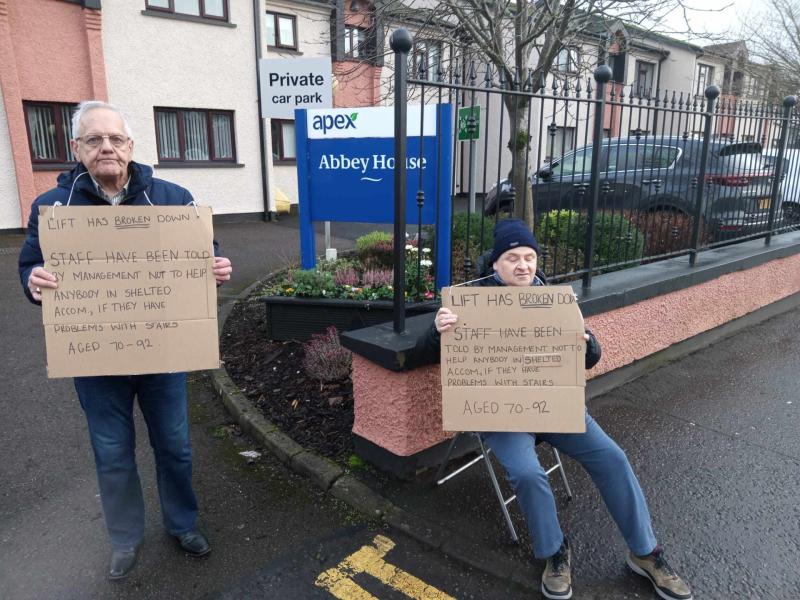 Private
car park
apex
Abbey House
LIFT HAS BROKEN DOWN
STAFF HAVE BEEN TOLD
BY MANAGEMENT NOT TO HELP
ANYBODY IN SHELTED
ACCOM, IF THEY HAVE
PROBLEMS WITH STAIRS
AGED 70-92
LIFT HAS BROKEN DOW
STAFF HAVE BEEN
TOLD BY MANAGEMENT NOT TO
HELP ANYBODY IN SHELTED
ACCOM, IF THEY HAVE
PROBLEMS WITH STAIRS
AGED 70-92